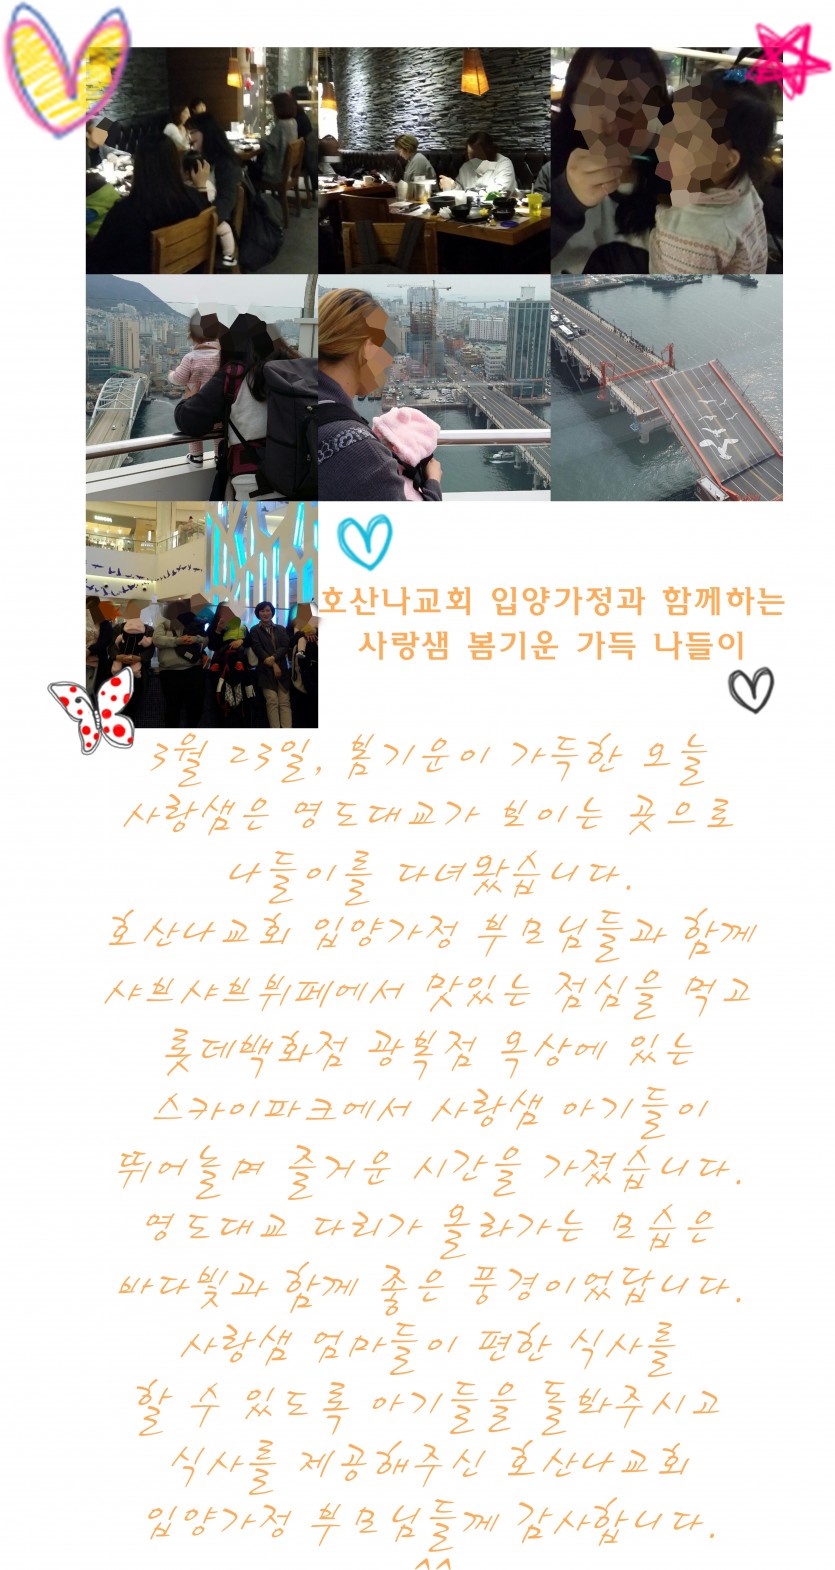 호산나교회 입양가정과 함께하는
사랑샘 봄기운 가득 나들이
3월 23일, 봄기운이 가득한 오늘
사랑샘은 영도대교가 보이는 곳으로
나들이를 다녀왔습니다.
호산나교회 입양가정 부모님들과 함께
샤브샤브뷔페에서 맛있는 점심을 먹고
롯데백화점 광복점 옥상에 있는
스카이파크에서 사랑샘 아기들이
뛰어놀며 즐거운 시간을 가졌습니다.
영도대교 다리가 올라가는 모습은
바다빛과 함께 좋은 풍경이었답니다.
사랑샘 엄마들이 편한 식사를
할 수 있도록 아기들을 돌봐주시고
식사를 제공해주신 호산나교회
입양가정 부모님들께 감사합니다.
^^